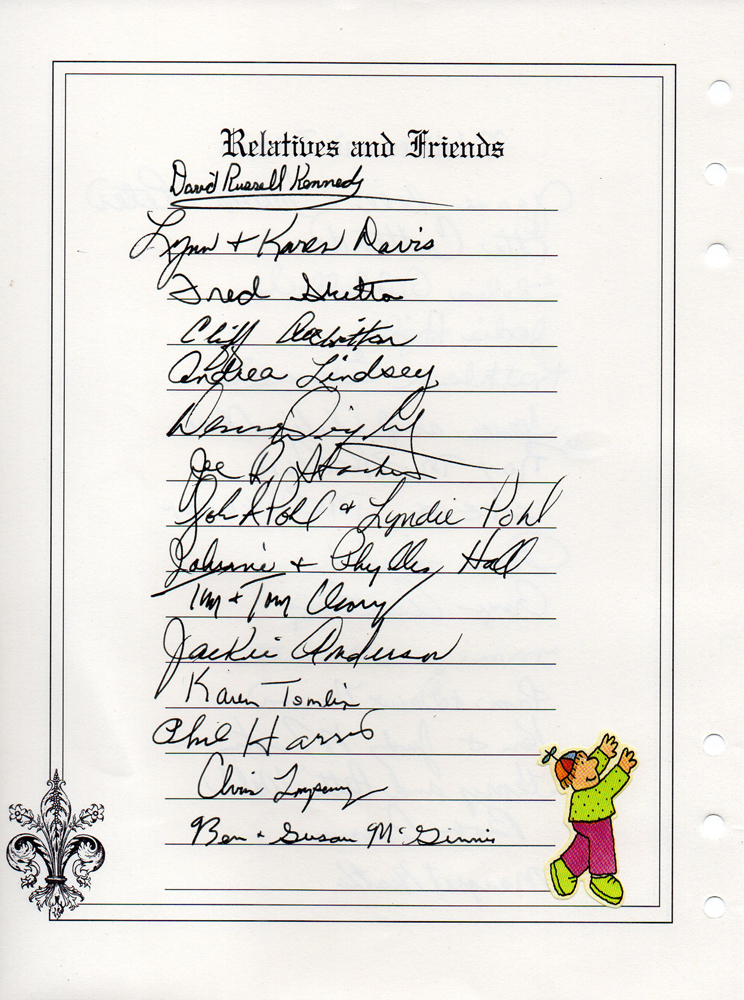 Relatives and Friends
David Russell Kennedy
Lynn + Karen Davis
Fred
Cliff
Andrea Lindsey
Joe
John Pohl & Lyndie Pohl
Johnnie + Phyllis Hall
Tim + Tom
Jackie Anderson
Karen Tomlin
Phil Harris
Chris
Ben + Susan McGinnis